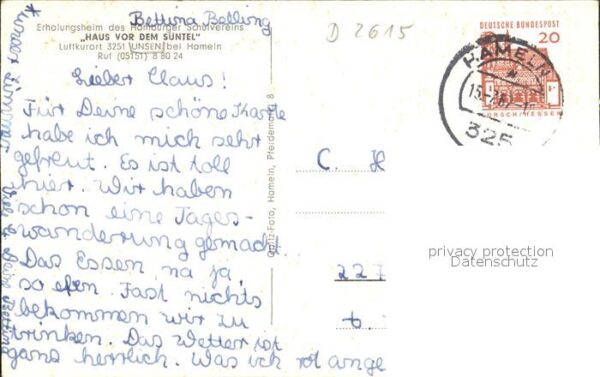 Bettina Bellung
Erholungsheim des Hamburger Schulvereins
"HAUS VOR DEM SÜNTEL"
Luftkurort 3251 UNSEN bei Hameln
Ruf (05151) 8 80 24
D 2615
DEUTSCHE BUNDESPOST
20
HAMELN
325
LORSCH/HESSEN
Lieber Claus!
Für Deine schöne Karte
habe ich mich sehr
gefreut. Es ist toll
hier. Wir haben
schon eine Tages-
wanderung gemacht.
Das Essen, na ja,
so eben. Fast nichts
bekommen wir zu
trinken. Das Wetter ist
ganz herrlich. Was ich rot ange
Foto, Hameln, Pferdemarkt 8
C. H
227
6.
privacy protection
Datenschutz
unser Zimmer
Viele Grüße Bettina